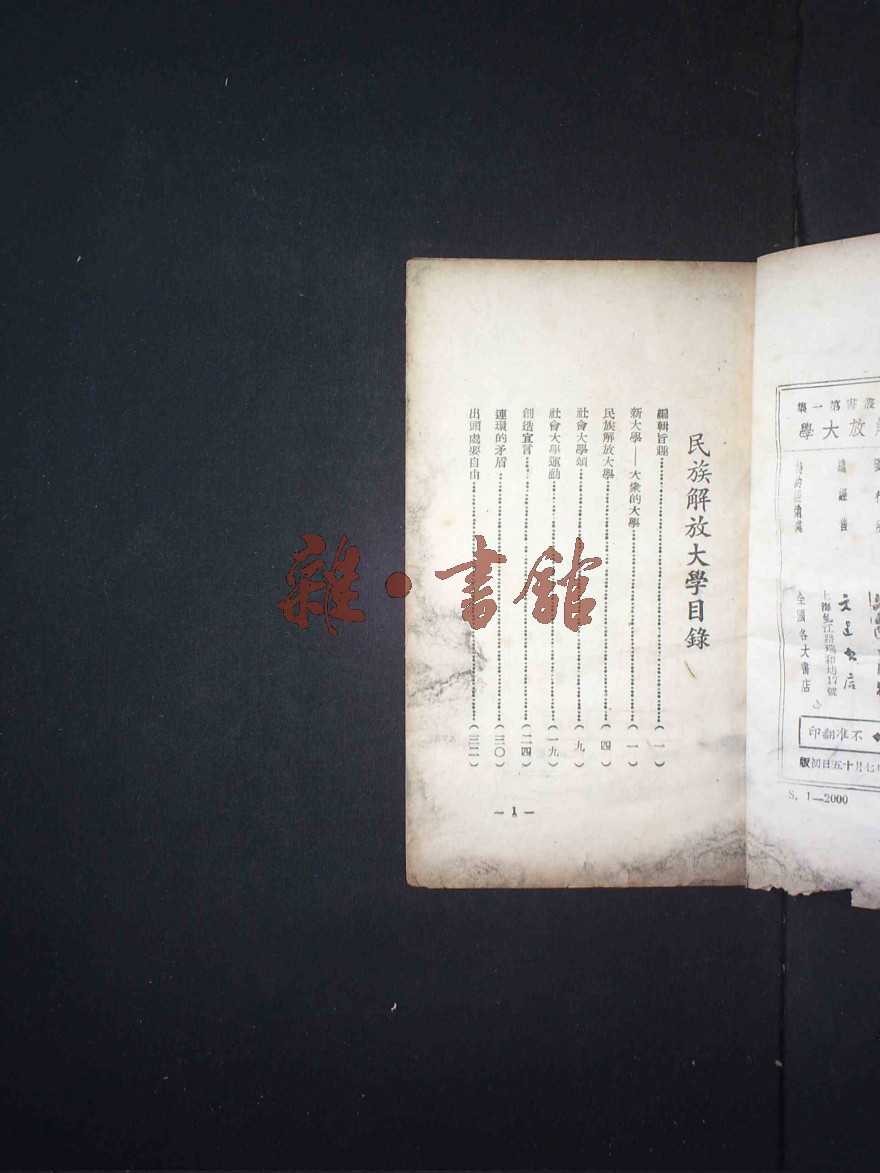 民族解放大學目錄
編輯旨趣……(一)
新大學——大衆的大學……(一)
民族解放大學……(四)
社會大學頌……(九)
社會大學運動……(一九)
創造宣言……(二四)
連環的矛盾……(三〇)
出頭處要自由……(三二)
— 1 —
叢書第一集
放大學
總經售
書店
上海虬江路瑞和坊17號
全國各大書店
不准翻印
七月十五日初版
S. 1—2000
雜·書館